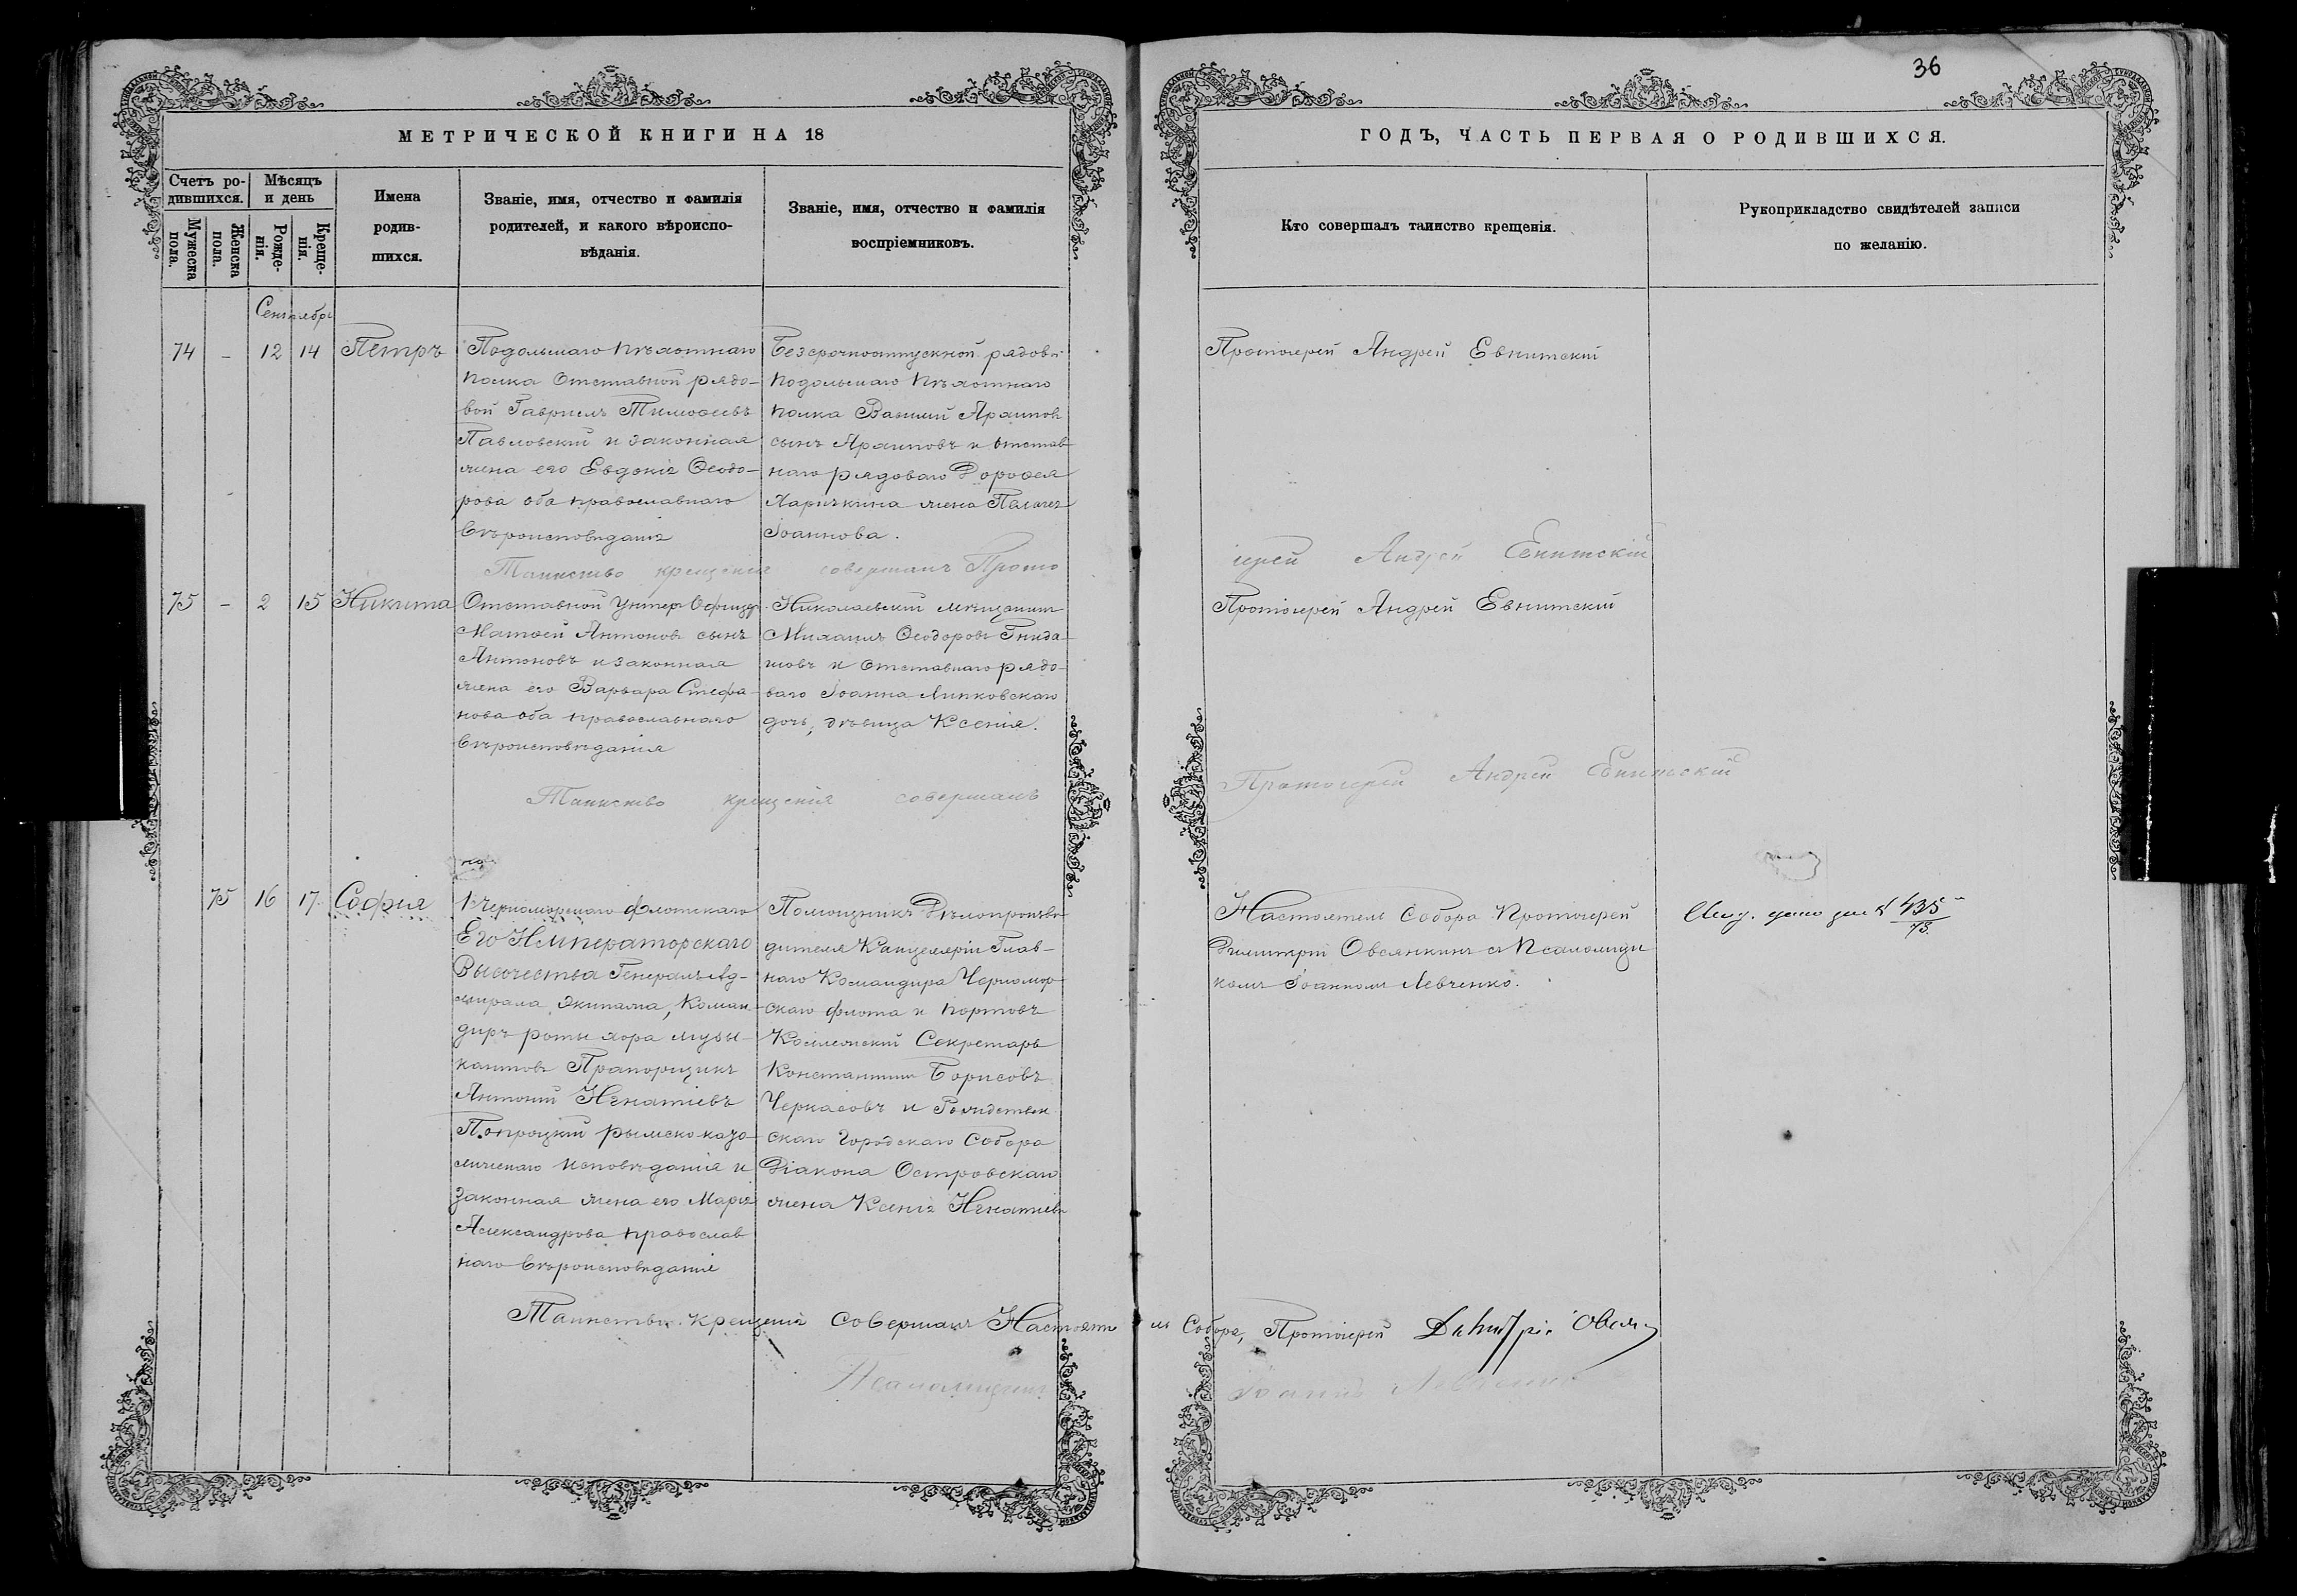 36
МЕТРИЧЕСКОЙ КНИГИ НА 18
ГОДЪ, ЧАСТЬ ПЕРВАЯ О РОДИВШИХСЯ.
Счетъ ро-
дившихся.
Мужеска
пола.
Женска
пола.
Мѣсяцъ
и день
Рожде-
нія.
Креще-
нія.
Имена
родив-
шихся.
Званіе, имя, отчество и фамилія
родителей, и какого вѣроиспо-
вѣданія.
Званіе, имя, отчество и фамилія
воспріемниковъ.
Кто совершалъ таинство крещенія.
Рукоприкладство свидѣтелей записи
по желанію.
Сентябрь
74 - 12 14 Петръ
Подольскаго пѣхотнаго
полка Отставной рядо-
вой Гавріилъ Тимофеевъ
Павловскій и законная
жена его Евдокія Ѳеодо-
рова оба православнаго
вѣроисповѣданія
Безсрочноотпускной рядовой
Подольскаго пѣхотнаго
полка Василій Архиповъ
сынъ Архиповъ и отстав
наго рядоваго Дорофея
жена Пелагея
Іоаннова.
Протоіерей Андрей Евнитскій
Таинство крещенія совершалъ Прото
іерей Андрей Евнитскій
75 - 2 15 Никита
Отставной Унтеръ Офицеръ
Матѳей Антоновъ сынъ
Антоновъ и законная
жена его Варвара Стефа-
нова оба православнаго
вѣроисповѣданія
Николаевскій мѣщанинъ
Михаилъ Ѳеодоровъ
и отставнаго рядо-
ваго Іоанна Липковскаго
дочь, дѣвица Ксенія.
Протоіерей Андрей Евнитскій
Таинство крещенія совершалъ
Протоіерей Андрей Евнитскій
75 16 17 Софія
1 Черноморскаго флотскаго
Его Императорскаго
Высочества Генералъ Ад-
мирала экипажа, Коман-
диръ роты хора музы-
кантовъ Прапорщикъ
Антоній Игнатіевъ
Попроцкій римско като-
лическаго исповѣданія и
законная жена его Марія
Александрова православ
наго вѣроисповѣданія
Помощникъ Дѣлопроизво
дителя Канцеляріи Глав-
наго Командира Черномор-
скаго флота и портовъ
Коллежскій Секретарь
Константинъ Борисовъ
Черкасовъ и Рождествен
скаго Городскаго Собора
Діакона Островскаго
жена Ксенія Игнатіева
Настоятель Собора Протоіерей
Димитрій Овсянкинъ съ Псаломщи
комъ Іоанномъ Левченко.
435
Таинство крещенія совершалъ Настоятель Собора, Протоіерей
Псаломщикъ Іоаннъ Левченко